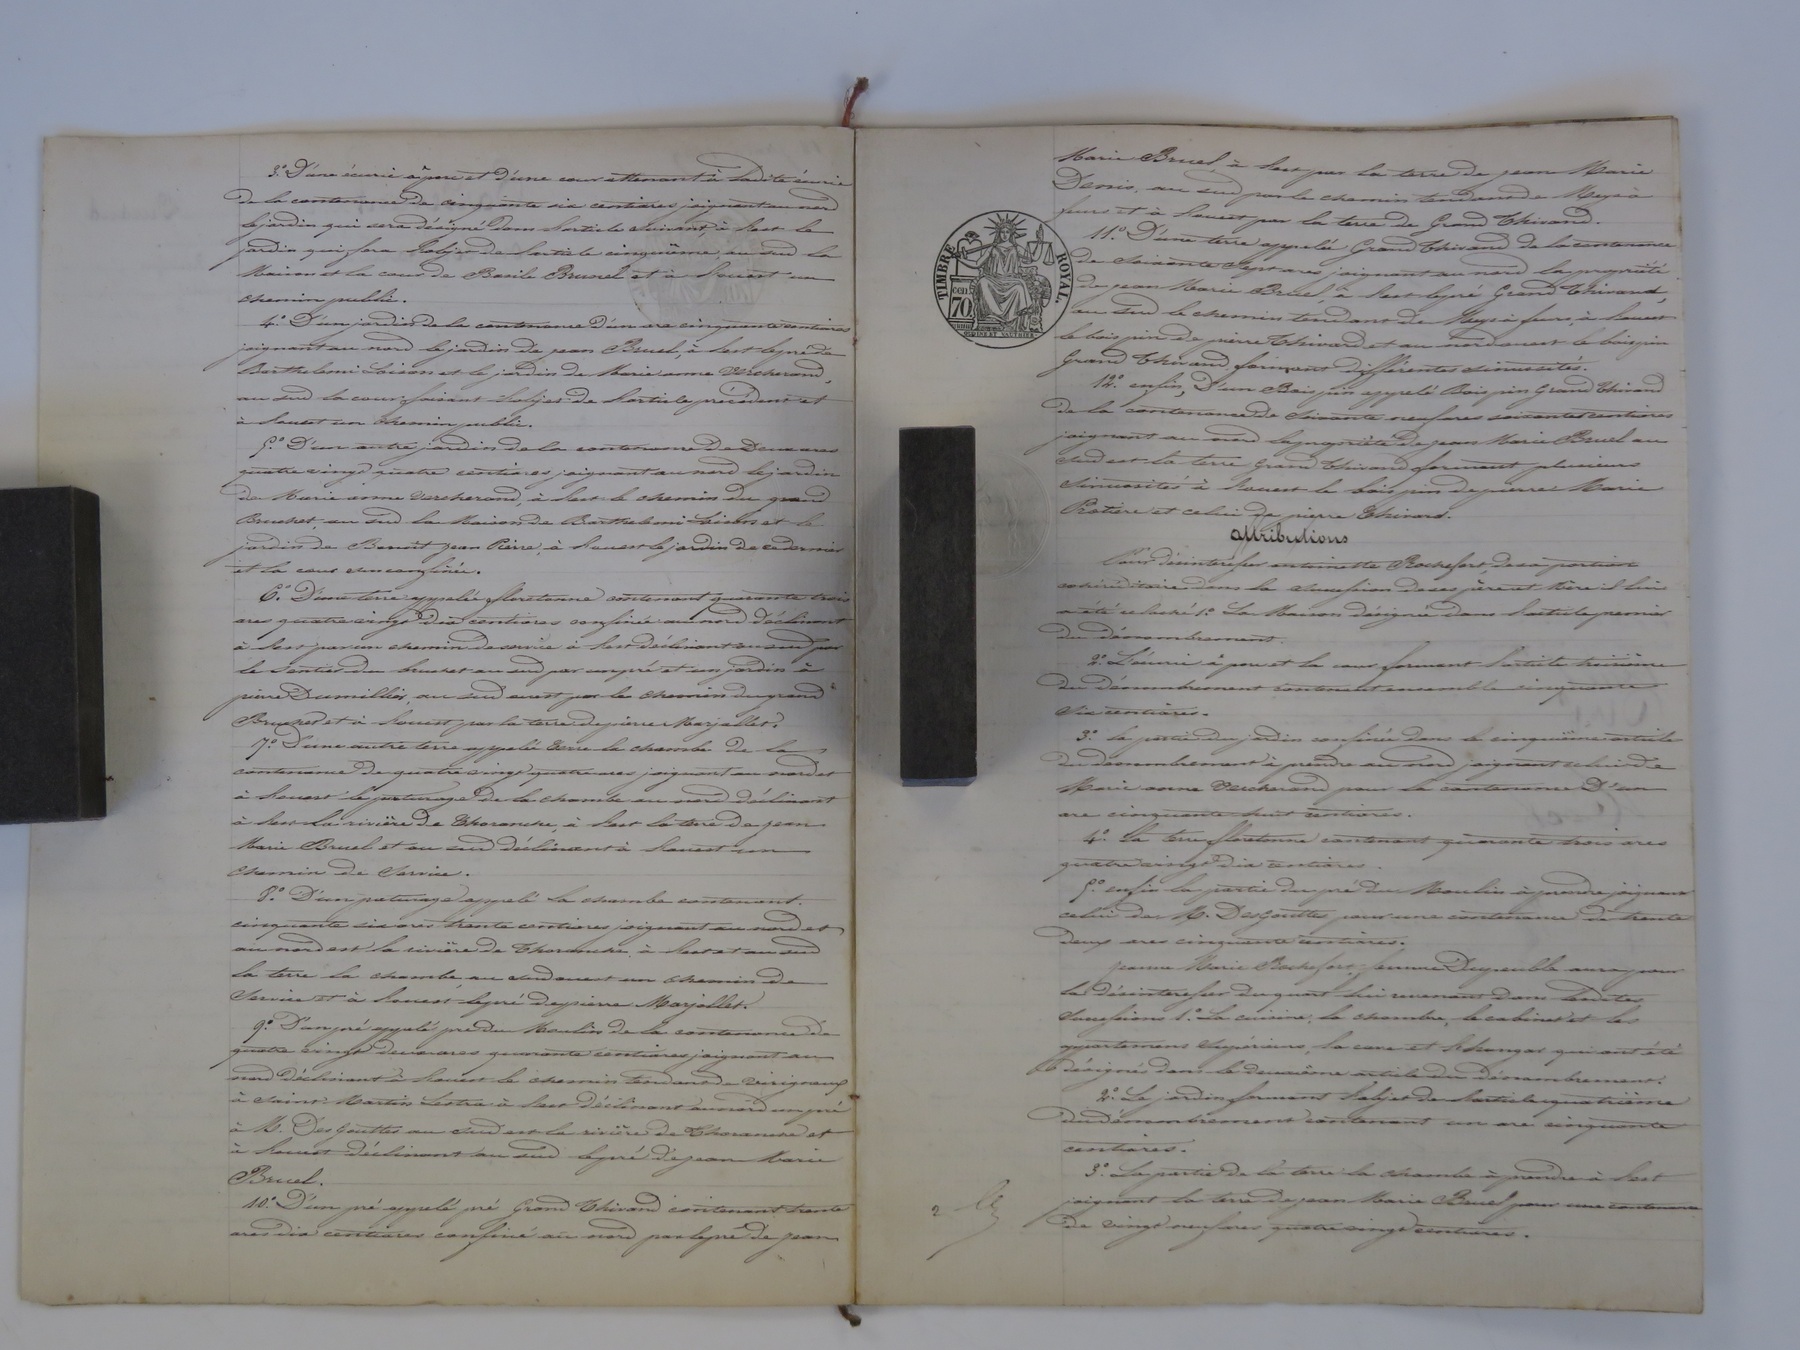 3.° D'une écurie à porc et d'une cour attenant à ladite écurie
de la contenance de cinquante six centiares joignant au nord
le jardin qui sera désigné dans l'article suivant, à l'est le
jardin qui fera l'objet de l'article cinquième, au sud la
Maison et la cour de Basile Brunel et à l'ouest un
chemin public.
4.° D'un jardin de la contenance d'un are cinquante centiares
joignant au nord le jardin de jean Bruel, à l'est le pré de
Barthelemi Loison et le jardin de Marie anne Vercherand,
au sud la cour faisant l'objet de l'article précédent et
à l'ouest un chemin public.
5.° D'un autre jardin de la contenance de Deux ares
quatre vingt quatre centiares joignant au nord le jardin
de Marie anne Vercherand, à l'est le chemin du grand
Bruchet, au sud la Maison de Barthelemi Loison et le
jardin de Benoit jean Pierre, à l'ouest le jardin de ce dernier
et la cour susconfinée.
6.° D'une terre appelée floretonne contenant quarante trois
ares quatre vingt dix centiares confinée au nord déclinant
à l'est par un chemin de service à l'est déclinant au sud par
le Sentier du bruchet au sud par un pré et un jardin à
pierre Dumillier, au sud ouest par le chemin du grand
Bruchet et à l'ouest par la terre de pierre Marjollet.
7.° D'une autre terre appelée terre la chambe de la
contenance de quatre vingt quatre ares joignant au nord et
à l'ouest le paturage de la chambe au nord déclinant
à l'est la rivière de Thoranche, à l'est la terre de jean
Marie Bruel et au sud déclinant à l'ouest un
chemin de Service.
8.° D'un paturage appelé la chambe contenant
cinquante six ares trente centiares joignant au nord et
au nord est la rivière de Thoranche, à l'est et au sud
la terre la chambe au sud ouest un chemin de
Service et à l'ouest le pré de pierre Marjollet.
9.° D'un pré appelé pré du Moulin de la contenance de
quatre vingt deux ares quarante centiares joignant au
nord déclinant à l'ouest le chemin tendant de Virigneux
à Saint Martin Lestra à l'est déclinant au nord un pré
à M. Des Gouttes au sud est la rivière de Thoranche et
à l'ouest déclinant au sud le pré de jean Marie
Bruel.
10.° D'un pré appelé pré Grand Thivand contenant trente
ares dix centiares confiné au nord par le pré de jean
Marie Bruel, à l'est par la terre de jean Marie
Denis, au sud par le chemin tendant de Meys à
feurs et à l'ouest par la terre de Grand Thivand.
11.° D'une terre appelée Grand Thivand de la contenance
de soixante sept ares joignant au nord la propriété
de jean Marie Bruel, à l'est le pré Grand Thivand,
au sud le chemin tendant de Meys à feurs, à l'ouest
le bois pin de pierre Thivard et au nord ouest le bois pin
Grand Thivand formant différentes sinuosités.
12.° enfin, D'un Bois pin appelé Bois pin Grand Thivand
de la contenance de soixante neuf ares soixante centiares
joignant au nord la propriété de jean Marie Bruel au
sud est la terre Grand Thivand formant plusieurs
sinuosités à l'ouest le bois pin de pierre Marie
Protière et celui de pierre Thivard.
attributions
Pour désintéresser antoinette Rochefort, de sa portion
cohéréditaire dans la succession de ses père et Mère il lui
a été relaché 1.° La Maison désignée dans l'article premier
du dénombrement.
2.° L'écurie à porc et la cour formant l'article troisième
du dénombrement contenant ensemble cinquante
six centiares.
3.° la partie du jardin confinée dans le cinquième article
du dénombrement à prendre au nord joignant celui de
Marie anne Vercherand pour la contenance d'un
are cinquante huit centiares.
4.° La terre floretonne contenant quarante trois ares
quatre vingt dix centiares.
5.° enfin la partie du pré du Moulin à prendre joignant
celui de M. Des Gouttes pour une contenance de trente
deux ares cinquante centiares.
jeanne Marie Rochefort, femme Dupeuble aura pour
la désintéresser du quart lui revenant dans lesdites
successions 1.° La cuisine, la chambre, le cabinet et les
appartemens supérieurs, la cave et l'hangar qui ont été
désignés dans le deuxième article du dénombrement.
2.° Le jardin formant l'objet de l'article quatrième
du dénombrement contenant un are cinquante
centiares.
3.° La partie de la terre la chambe à prendre à l'est
joignant la terre de jean Marie Bruel pour une contenance
de vingt neuf ares quatre vingt centiares.
TIMBRE ROYAL.
cen
70
2